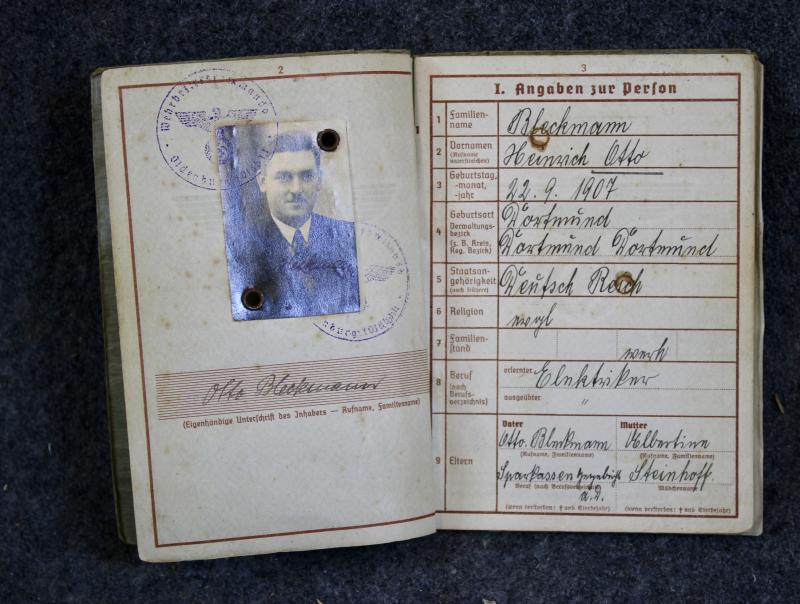 2
Otto Bleckmann
(Eigenhändige Unterschrift des Inhabers — Rufname, Familienname)
3
I. Angaben zur Person
1 Familien-
name
Bleckmann
2 Vornamen
(Rufname
unterstreichen)
Heinrich Otto
3 Geburtstag,
-monat,
-jahr
22. 9. 1907
4 Geburtsort
Verwaltungs-
bezirk
(z. B. Kreis,
Reg. Bezirk)
Dortmund
Dortmund Dortmund
5 Staatsan-
gehörigkeit
(auch frühere)
Deutsch Reich
6 Religion
7 Familien-
stand
8 Beruf
(nach
Berufs-
verzeichnis)
erlernter
Elektriker
ausgeübter
"
9 Eltern
Vater
Otto Bleckmann
(Rufname, Familienname)
Sparkassen
Beruf (nach Berufsverzeichnis)
a.D.
(wenn verstorben: † und Sterbejahr)
Mutter
Albertine
(Rufname, Familienname)
Steinhoff
Mädchenname
(wenn verstorben: † und Sterbejahr)